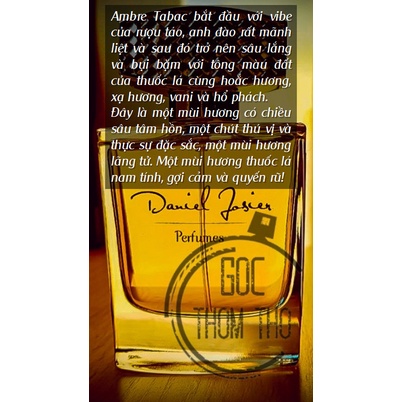 Ambre Tabac bắt đầu với vibe
của rượu táo, anh đào rất mãnh
liệt và sau đó trở nên sâu lắng
và bụi bặm với tông màu đất
của thuốc lá cùng hoắc hương,
xạ hương, vani và hổ phách.
Đây là một mùi hương có chiều
sâu tâm hồn, một chút thú vị và
thực sự đặc sắc, một mùi hương
lãng tử. Một mùi hương thuốc lá
nam tính, gợi cảm và quyến rũ!
Daniel Josier
Perfumes
GOC
THOM THO